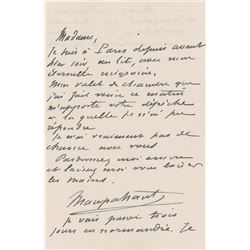 Madame,
Je suis à Paris depuis avant
hier soir au lit, avec mon
éternelle migraine.
Mon valet de chambre que
j'ai fait venir ce matin
m'apporte votre dépêche
à laquelle je n'ai pu
répondre.
Je n'ai vraiment pas de
chance avec vous
Pardonnez moi encore
et laissez moi vous baiser
les mains.
Maupassant
Je vais passer trois
jours en normandie. Je